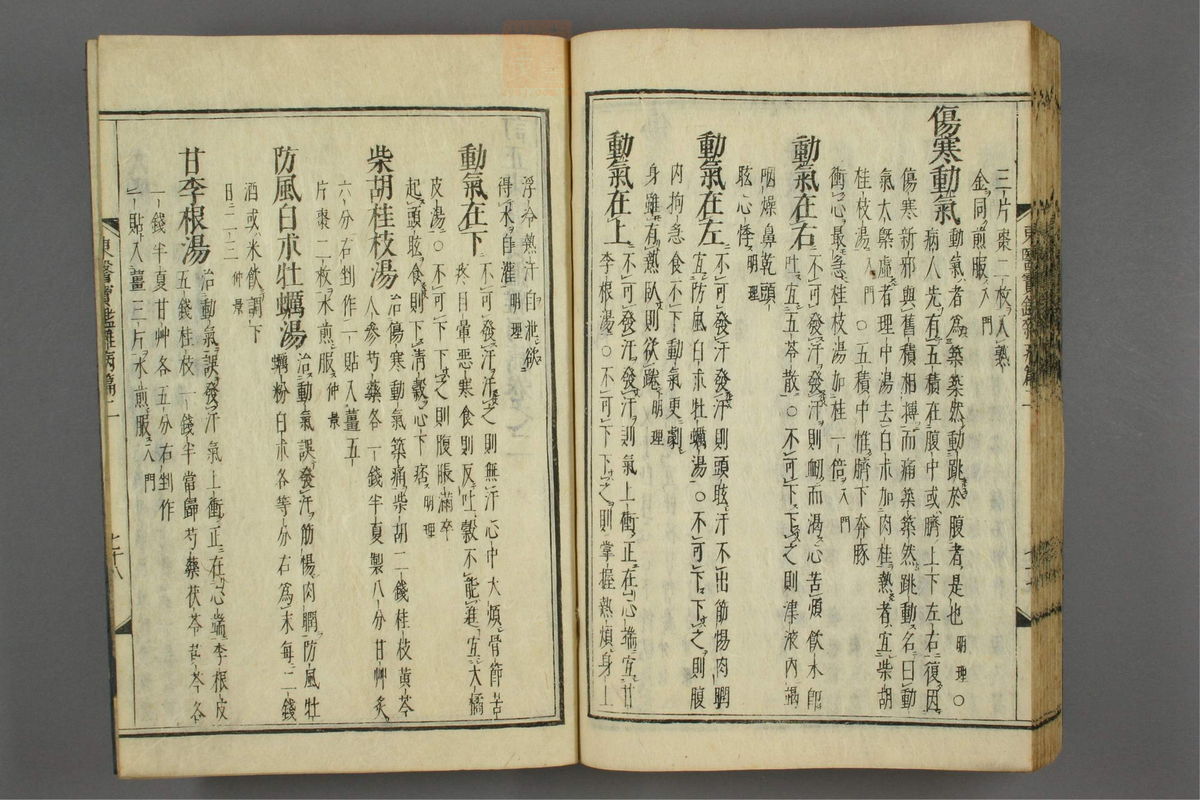 三片棗二枚入熟
金同煎服入門
傷寒動氣 動氣者爲築築然動跳於腹者是也明理○
病人先有五積在腹中或臍上下左右復因
傷寒新邪與舊積相搏而痛築築然跳動名曰動
氣大槩虛者理中湯去白朮加肉桂熱者宜柴胡
桂枝湯入門○五積中惟臍下奔豚
衝心最急桂枝湯加桂一倍入門
動氣在右 不可發汗發汗則衄而渴心苦煩飮水卽
吐宜五苓散○不可下下之則津液內竭
咽燥鼻乾頭
眩心悸明理
動氣在左 不可發汗發汗則頭眩汗不出筋惕肉瞤
宜防風白朮牡蠣湯○不可下下之則腹
內拘急食不下動氣更劇
身雖有熱臥則欲踡明理
動氣在上 不可發汗發汗則氣上衝正在心端宜甘
李根湯○不可下下之則掌握熱煩身上
浮冷熱汗自泄欲
得水自灌明理
動氣在下 不可發汗汗之則無汗心中大煩骨節苦
疼目暈惡寒食則反吐穀不能進宜大橘
皮湯○不可下下之則腹脹滿卒
起頭眩食則下淸穀心下痞明理
柴胡桂枝湯 治傷寒動氣築痛柴胡二錢桂枝黃芩
人參芍藥各一錢半夏製八分甘艸炙
六分右剉作一貼入薑五
片棗二枚水煎服仲景
防風白朮牡蠣湯 治動氣誤發汗筋惕肉瞤防風牡
蠣粉白朮各等分右爲末每二錢
酒或米飮調下
日二三仲景
甘李根湯 治動氣誤發汗氣上衝正在心端李根皮
五錢桂枝一錢半當歸芍藥茯苓黃芩各
一錢半夏甘艸各五分右剉作
一貼入薑三片水煎服入門
東醫寶鑑雜病篇二
七十八